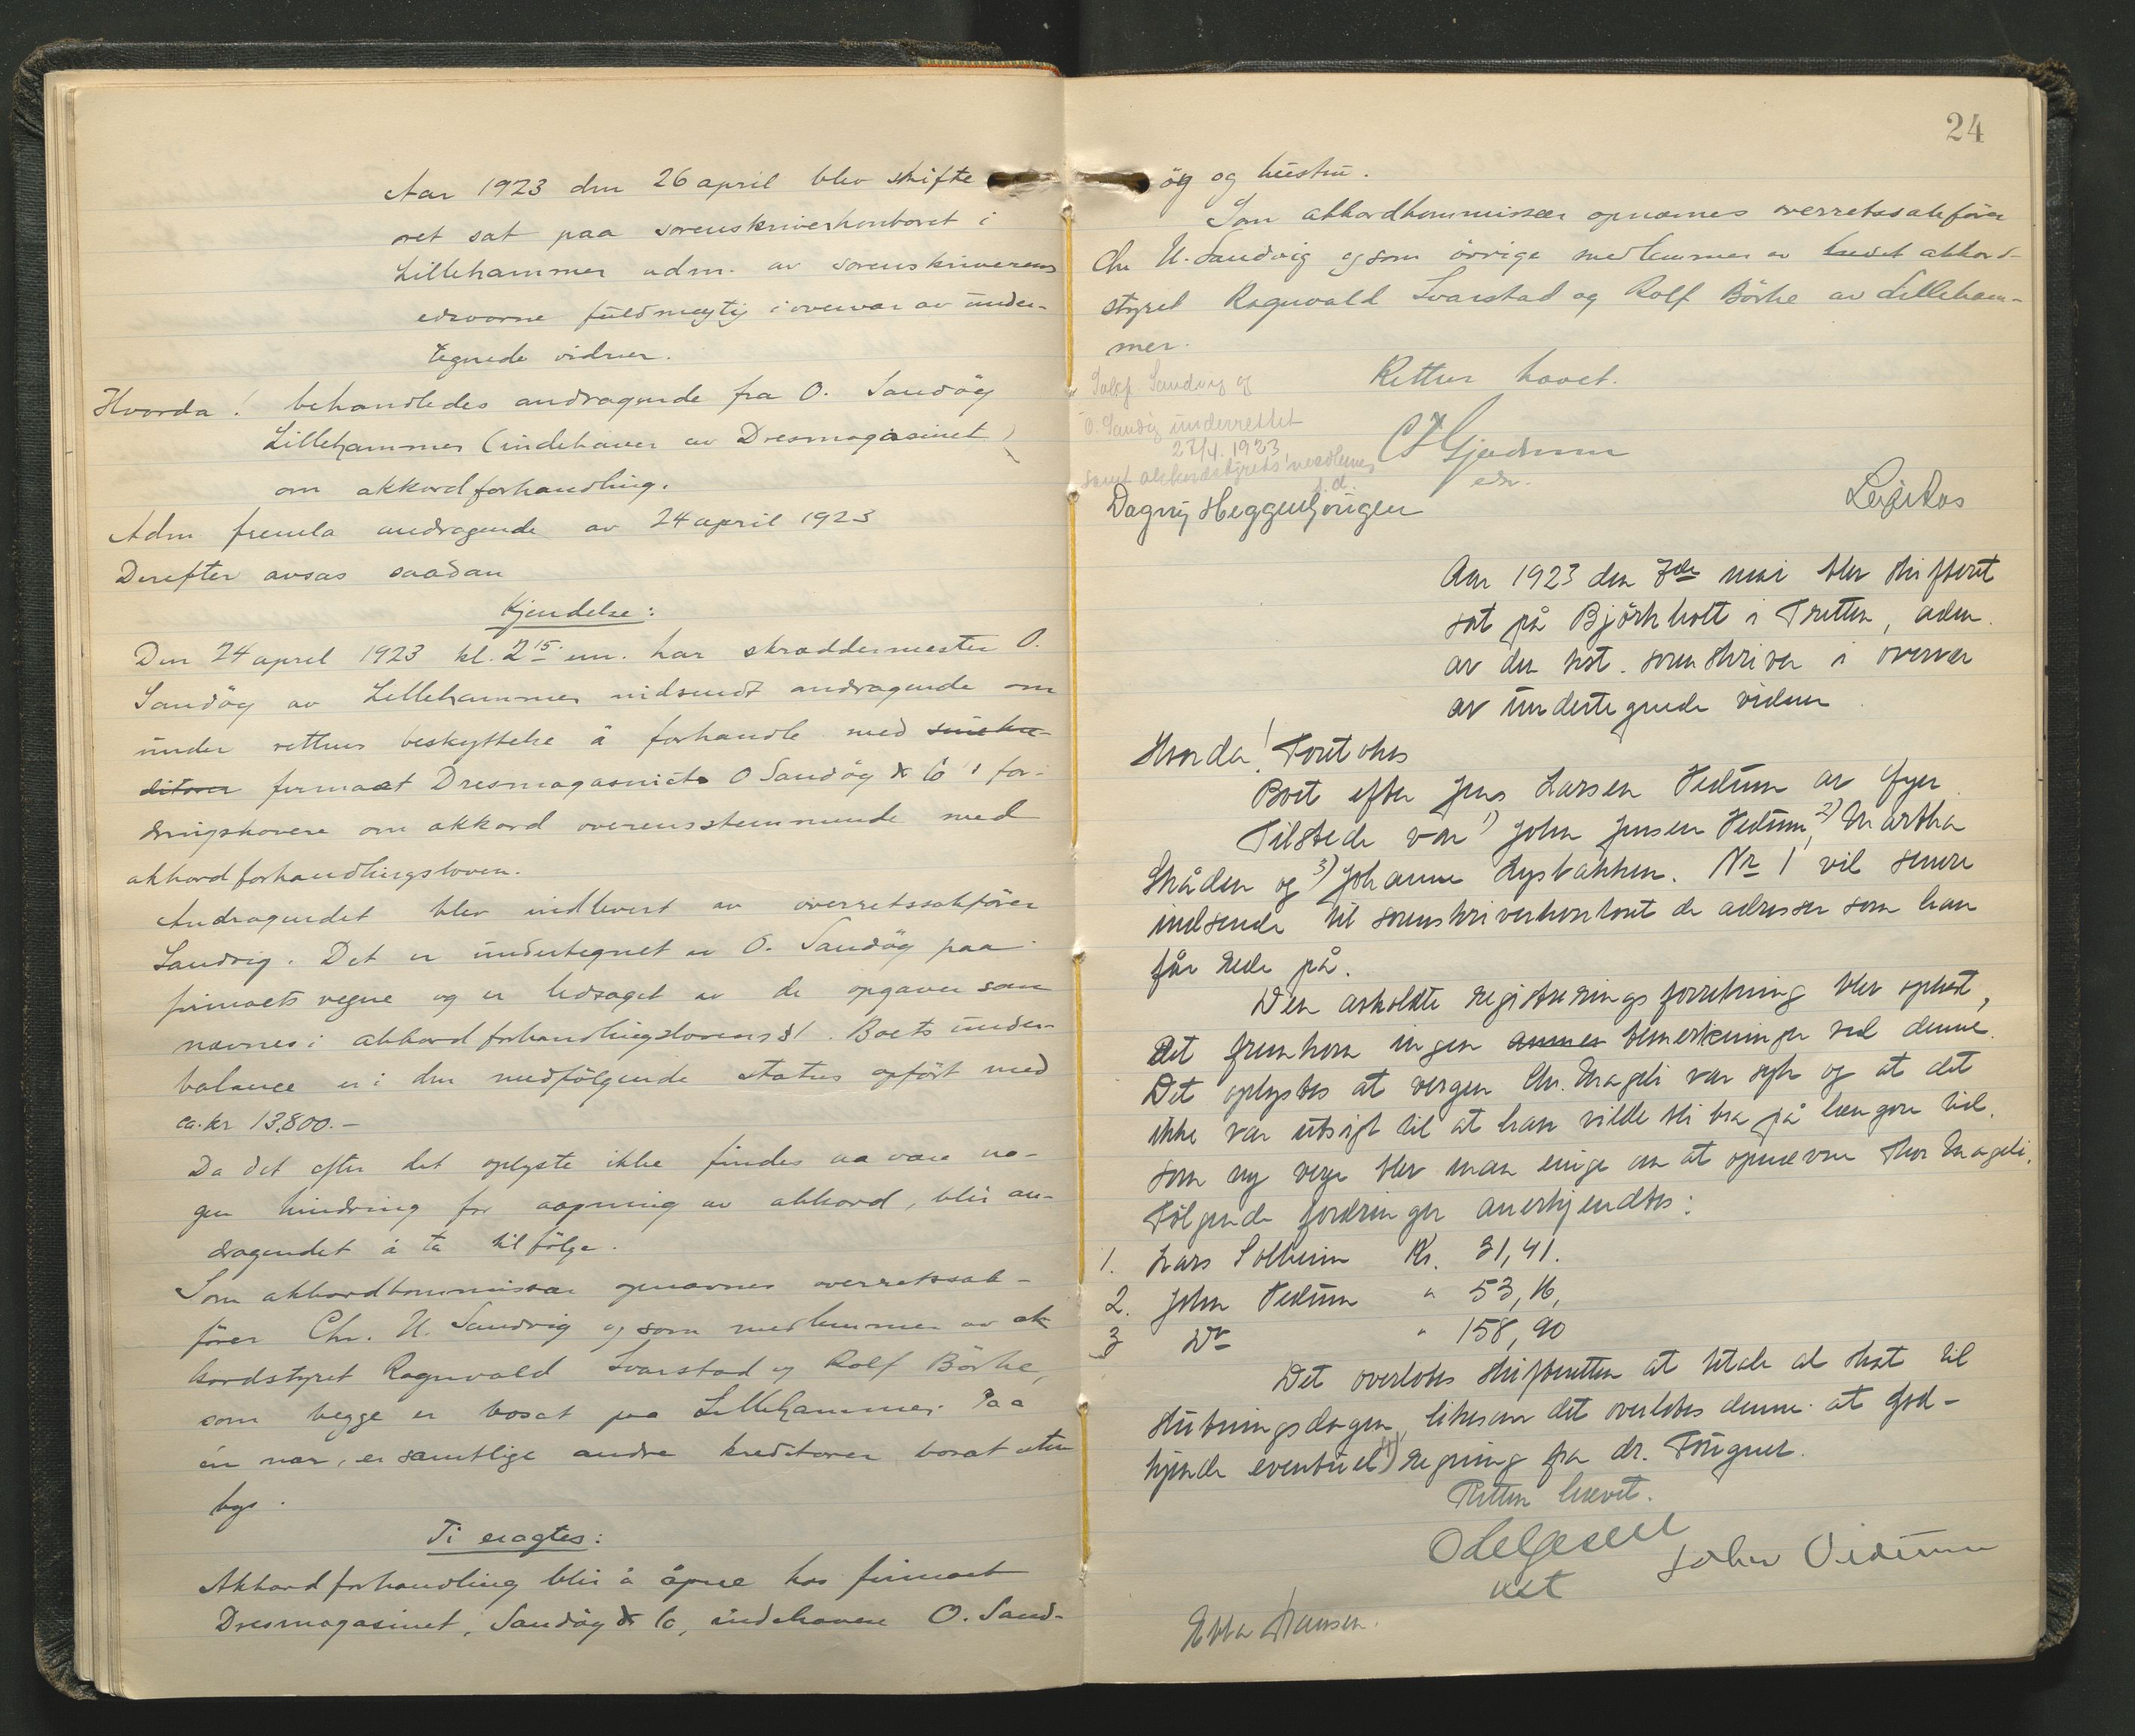 Aar 1923 den 26 april blev skifte
ret sat paa sorenskriverkontoret i
Lillehammer adm. av sorenskriverens
edsvorne fuldmegtig i overvær av under-
tegnede vidner.
Hvorda! behandledes andragende fra O. Sandøy
Lillehammer (indehaver av Dresmagasinet)
om akkordforhandling.
Adm fremla andragende av 24 april 1923
Derefter avsas saadan
Kjendelse:
Den 24 april 1923 kl. 2 15 em. har skræddermester O.
Sandøy av Lillehammer indsendt andragende om
under rettens beskyttelse å forhandle med sine kre-
ditorer firmaet Dresmagasinet O Sandøy & Co's for-
dringshavere om akkord overensstemmende med
akkordforhandlingsloven.
Andragendet blev indlevert av overretssakfører
Sandvig. Det er undertegnet av O. Sandøy paa
firmaets vegne og er ledsaget av de opgaver som
nævnes i akkordforhandlingslovens § 1. Boets under-
balance er i den medfølgende status opført med
ca. kr 13,800.-
Da det efter det oplyste ikke findes aa være no-
gen hindring for aapning av akkord, blir an-
dragendet å ta til følge.
Som akkordkommissær opnævnes overretssak-
fører Chr. U. Sandvig og som medlemmer av ak
kordstyret Ragnvald Svarstad og Rolf Börke,
som begge er bosat paa Lillehammer. Paa
én nær, er samtlige andre kreditorer bosat uten
bys.
Ti eragtes:
Akkordforhandling blir å åpne hos firmaet
Dresmagasinet, Sandøy & Co, indehavere O. Sand-
24
øy og hustru.
Som akkordkommissær opnævnes overretssakfører
Chr U. Sandvig og som øvrige medlemmer av akkord-
styret Ragnvald Svarstad og Rolf Börke av Lilleham-
mer.
Retten hævet.
Sakf. Sandvig og
O. Sandøy underrettet
27/4. 1923
samt akkordstyrets medlemmer
s.d.
Dagny Heggenhougen
Aar 1923 den 7de mai blev skifteret
sat på Björkholt i Tretten, adm.
av den kst. sorenskriver i overvær
av undertegnede vidner.
Hvorda! Foretokes
Boet efter Jens Larsen Vedum av Øyer.
Tilstede var 1) John Jensen Vedum, 2) Martha
Skåden og 3) Johanne Lysbakken. Nr 1 vil senere
indsende til sorenskriverkontoret de adresser som han
får rede på.
Den avholdte registreringsforretning blev oplæst,
Det fremkom ingen annen bemerkninger ved denne.
Det oplystes at vergen Chr. Mageli var syk og at det
ikke var utsigt til at han vilde bli bra på længere tid.
Som ny verge blev man enige om at opnævne Thor Mageli.
Følgende fordringer anerkjendtes:
1. Lars Solheim Kr. 31,41.
2. John Vedum " 53,16,
3 Do " 158,90
Det overlotes skifteretten at betale al skat til
slutningsdagen, likesom det overlotes denne at god-
kjende eventuel regning fra dr. Fougner.
Retten hævet.
John Vedum
kst
Ebba Hansen.